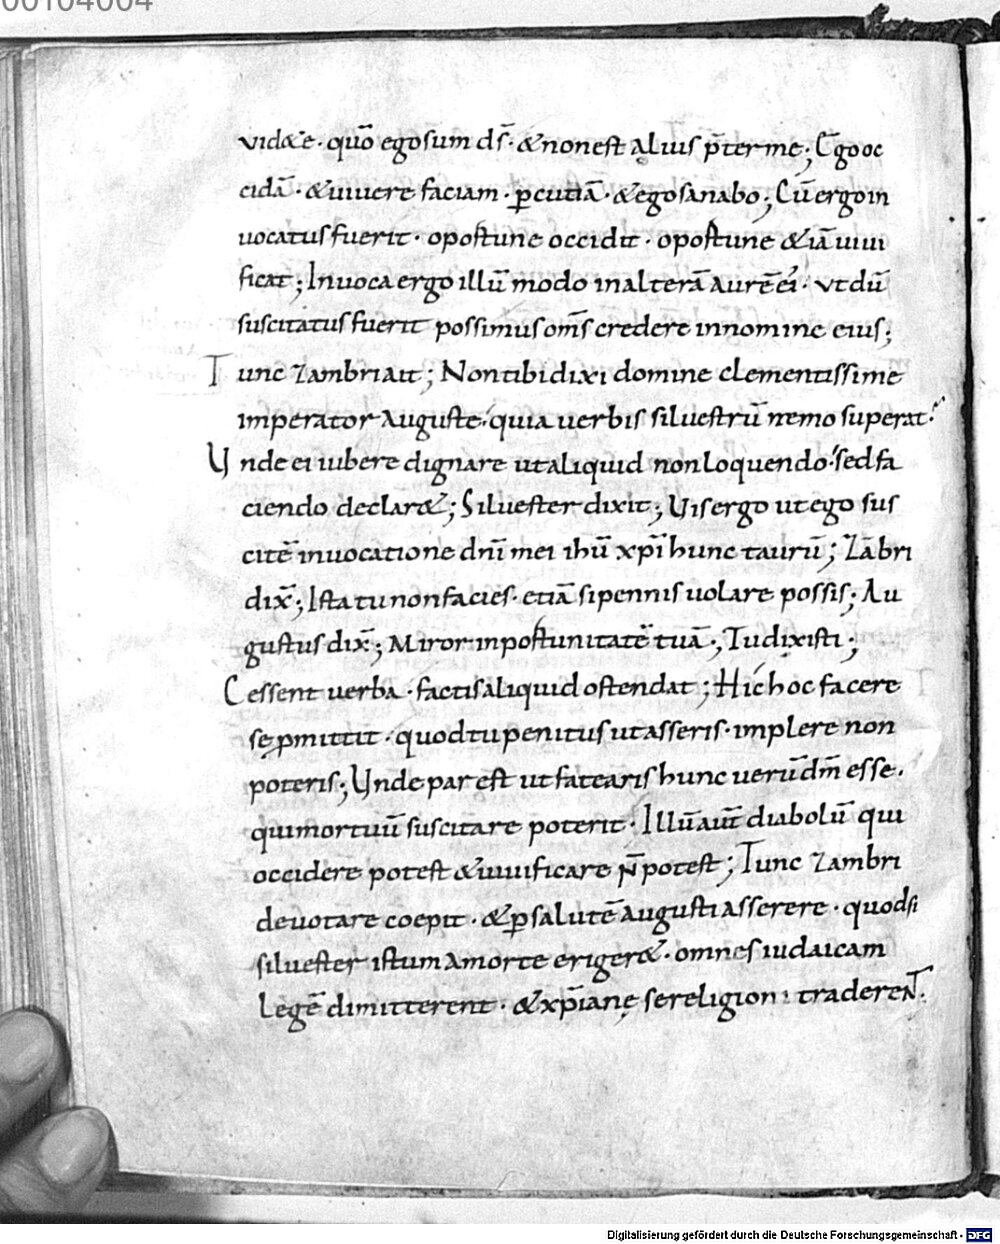 00104004
vid&e · quō ego sum ds̄ · & non est alius p̄ter me ; Ego oc
cidā · & uiuere faciam · ꝑcutiā · & ego sanabo ; Cū ergo in
uocatus fuerit · oportune occidit · oportune & iā uiui
ficat ; Inuoca ergo illū modo in alterā aurē ei' · vt dū
suscitatus fuerit possimus om̄s credere in nomine eius ;
Tunc zambri ait ; Non tibi dixi domine clementissime
imperator auguste · quia uerbis siluestrū nemo superat ·
Unde ei iubere dignare ut aliquid non loquendo · sed fa
ciendo declar& ; Siluester dixit ; Uis ergo ut ego sus
citē inuocatione dnī mei ihū xpī hunc taurū ; Zābri
dix̄ ; Ista tu non facies · etiā si pennis uolare possis ; Au
gustus dix̄ ; Miror inportunitatē tuā ; Tu dixisti ;
Cessent uerba · factis aliquid ostendat ; Hic hoc facere
se ꝑmittit · quod tu penitus ut asseris · implere non
poteris ; Unde par est ut fatearis hunc uerū dm̄ esse ·
qui mortuū suscitare poterit · Illū aut̄ diabolū qui
occidere potest & uiuificare n̄ potest ; Tunc zambri
deuotare coepit · & ꝑ salutē augusti asserere · quod si
siluester istum a morte eriger& · omnes iudaicam
legē dimitterent · & xp̄iane se religioni traderent ·
Digitalisierung gefördert durch die Deutsche Forschungsgemeinschaft - DFG